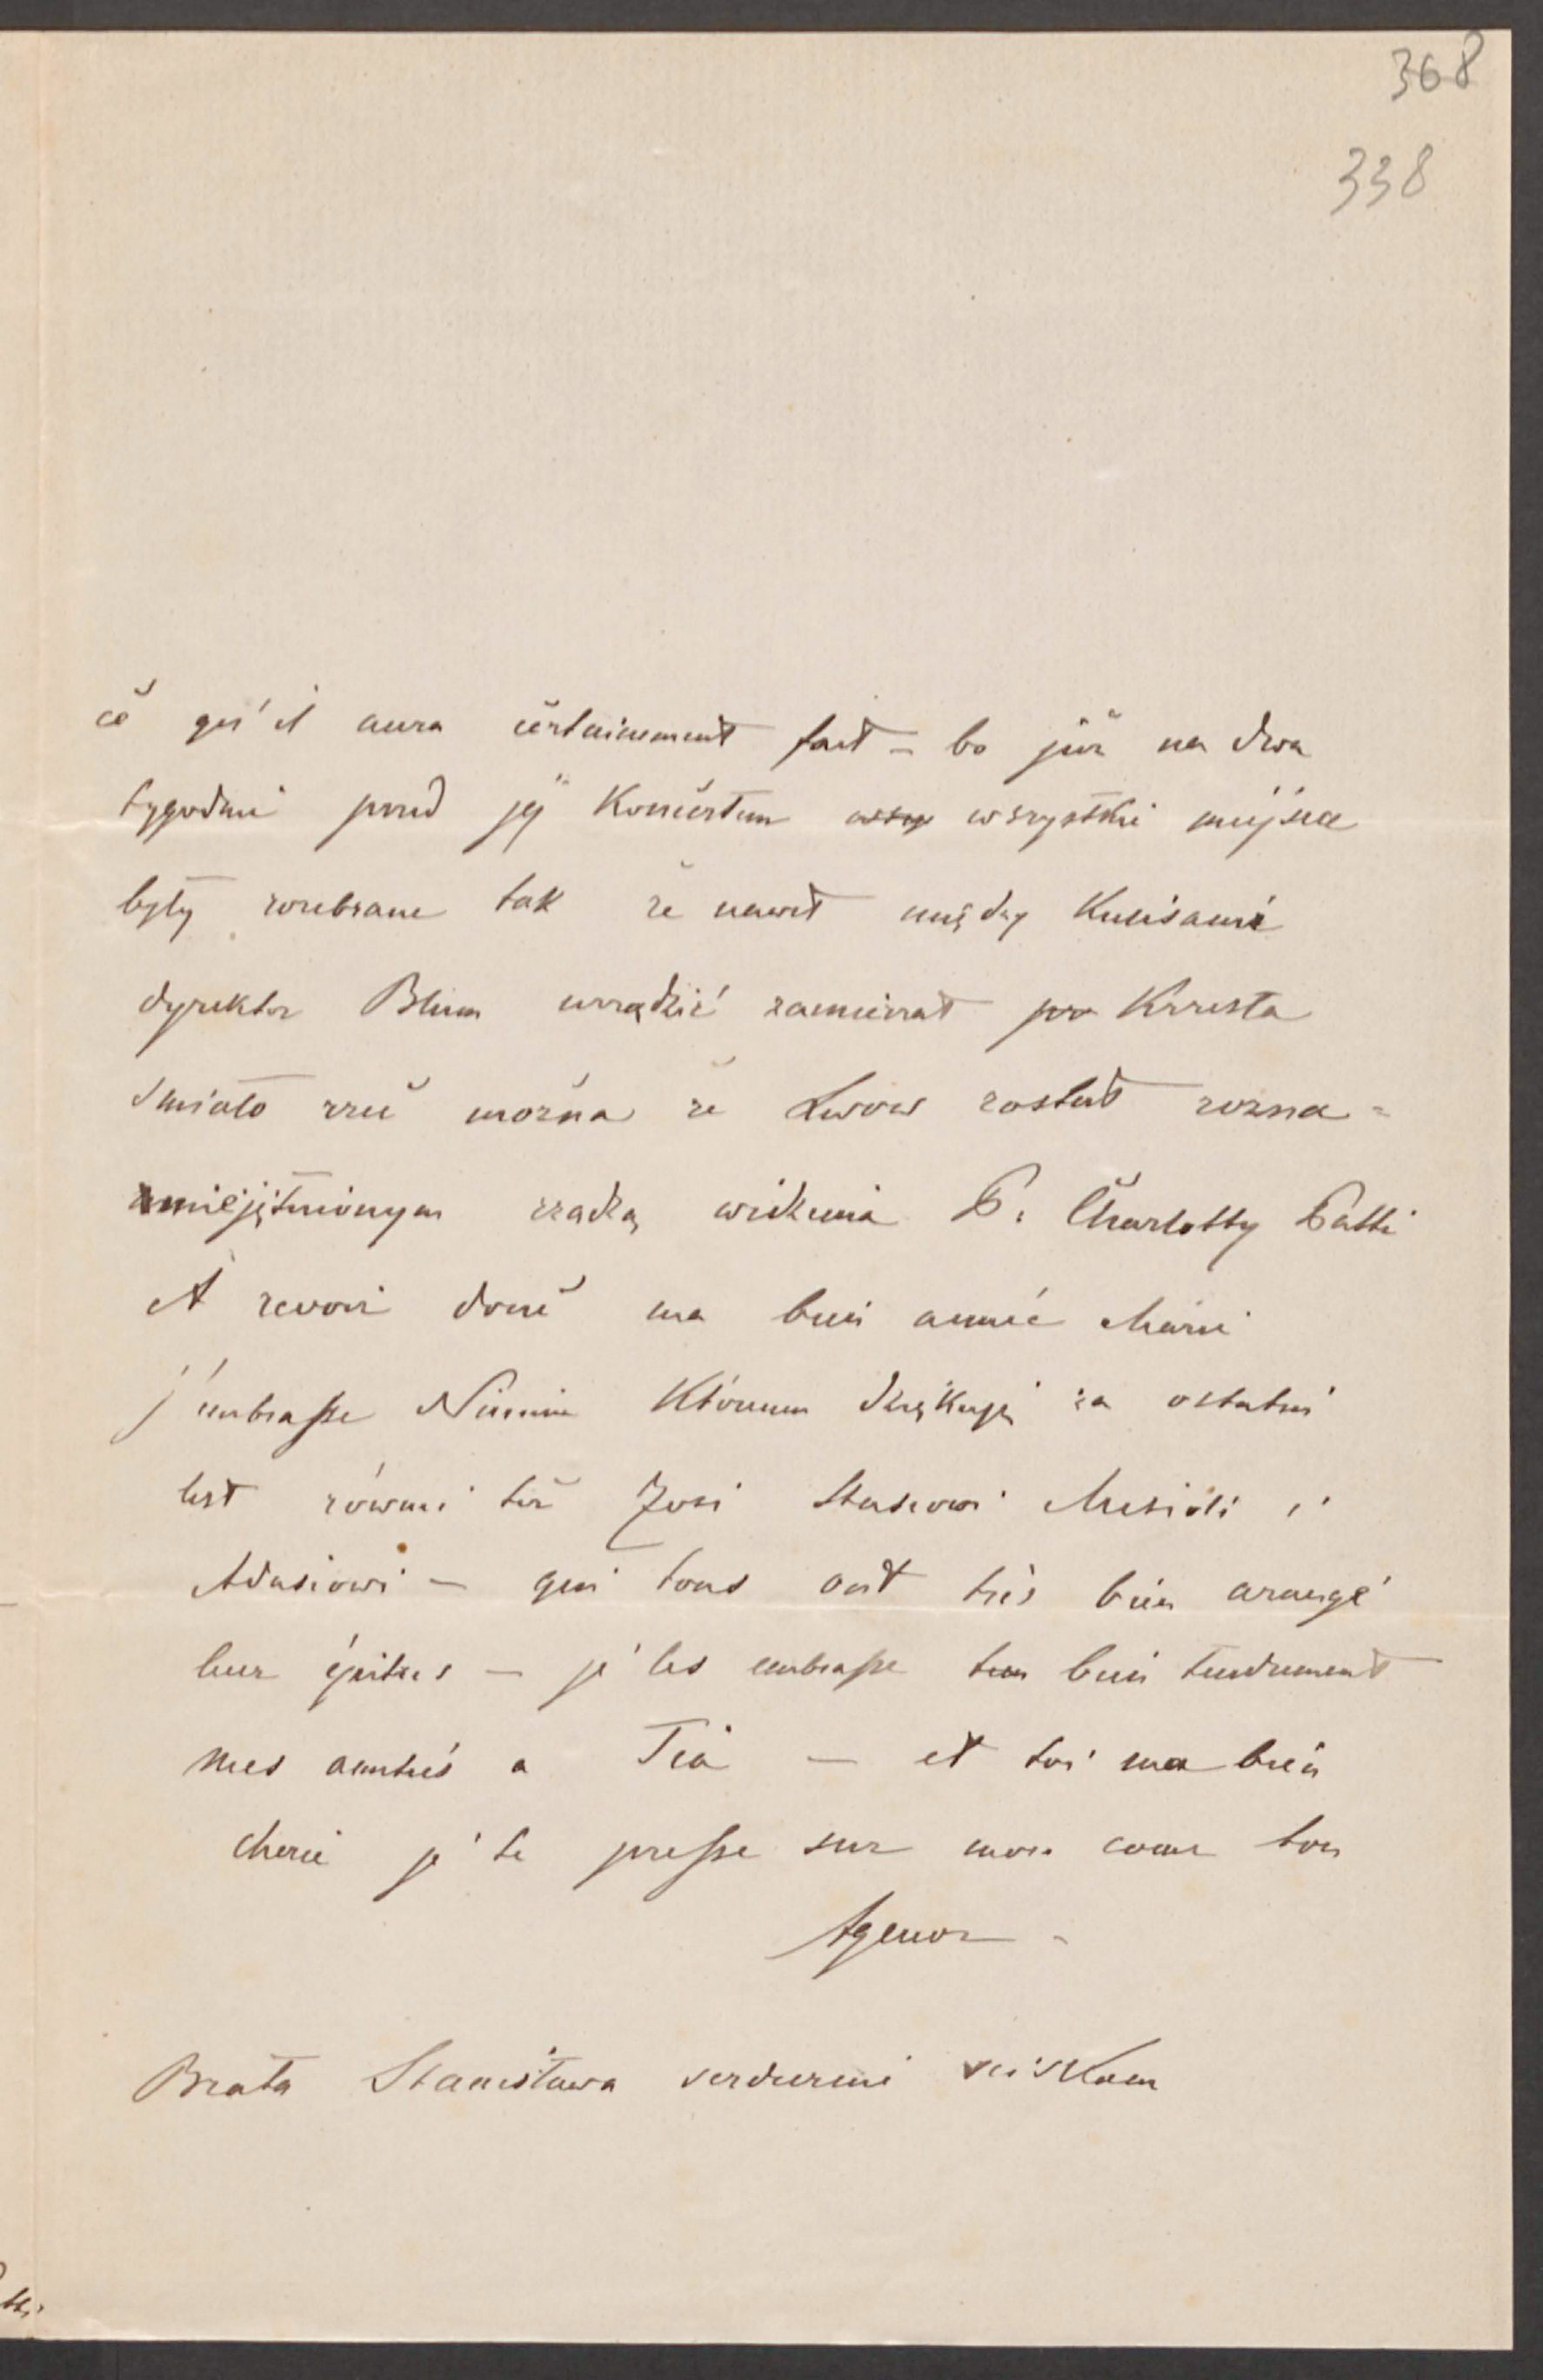 368
338
cĕ qu'il aura cĕrtainement fait – bo już na dwa
tygodnie przed jej Koncertem wszystkie miejsca
były rozebrane tak że nawet między Kulisami
dyrektor Blum urządzić zamierzał Krzesła
Smiało rzec można że Lwow został rozna=
miętnionym rządzą widzenia P. Charlotty Patti
A revoir donc ma bien aimée Marie
j'embrasse Ninime Któremu dziękuję za ostatni
list również też Zosi Stasiowi Misidi i
Adasiowi – qui tous ont très bien arangé
leur épitres – je les embrasse bien tendrement
mes amitiés a Tia – et toi ma bien
cherie je te presse sur mon coeur ton
Agenor –
Brata Stanisława serdecznie sciskam